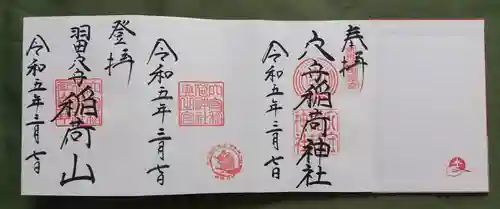 奉拝
穴守稲荷神社
令和五年三月七日
令和五年三月七日
登拝
羽田穴守稲荷山
令和五年三月七日